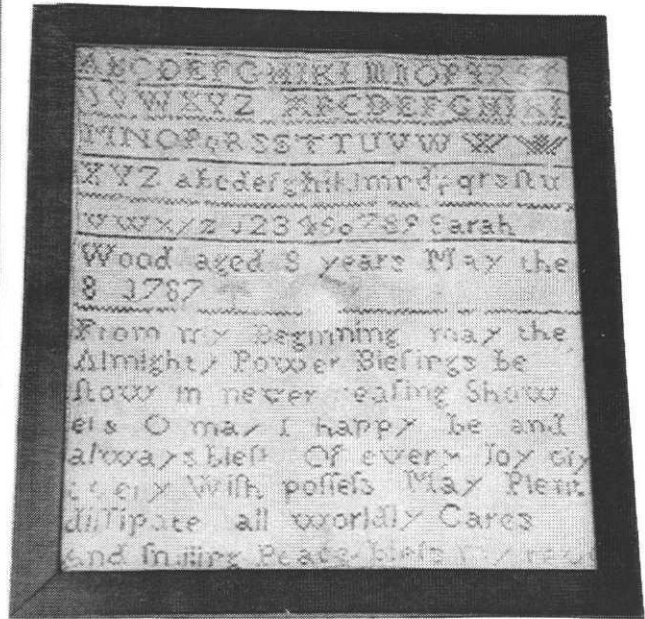 ABCDEFGHIKLMNOPQRST
UVWXYZ ABCDEFGHIKL
MNOPQRSSTTUVW W W
XYZ abcdefghiklmnopqrsſtu
vwxyz 123456789 Sarah
Wood aged 8 years May the
8 1787
From my Beginning may the
Almighty Power Bleſings be
ſtow in never ceaſing Show
ers O may I happy be and
always bleſt Of every Joy
every Wiſh poſſeſs May Plent
diſſipate all worldly Cares
and ſmiling Peace bleſs my